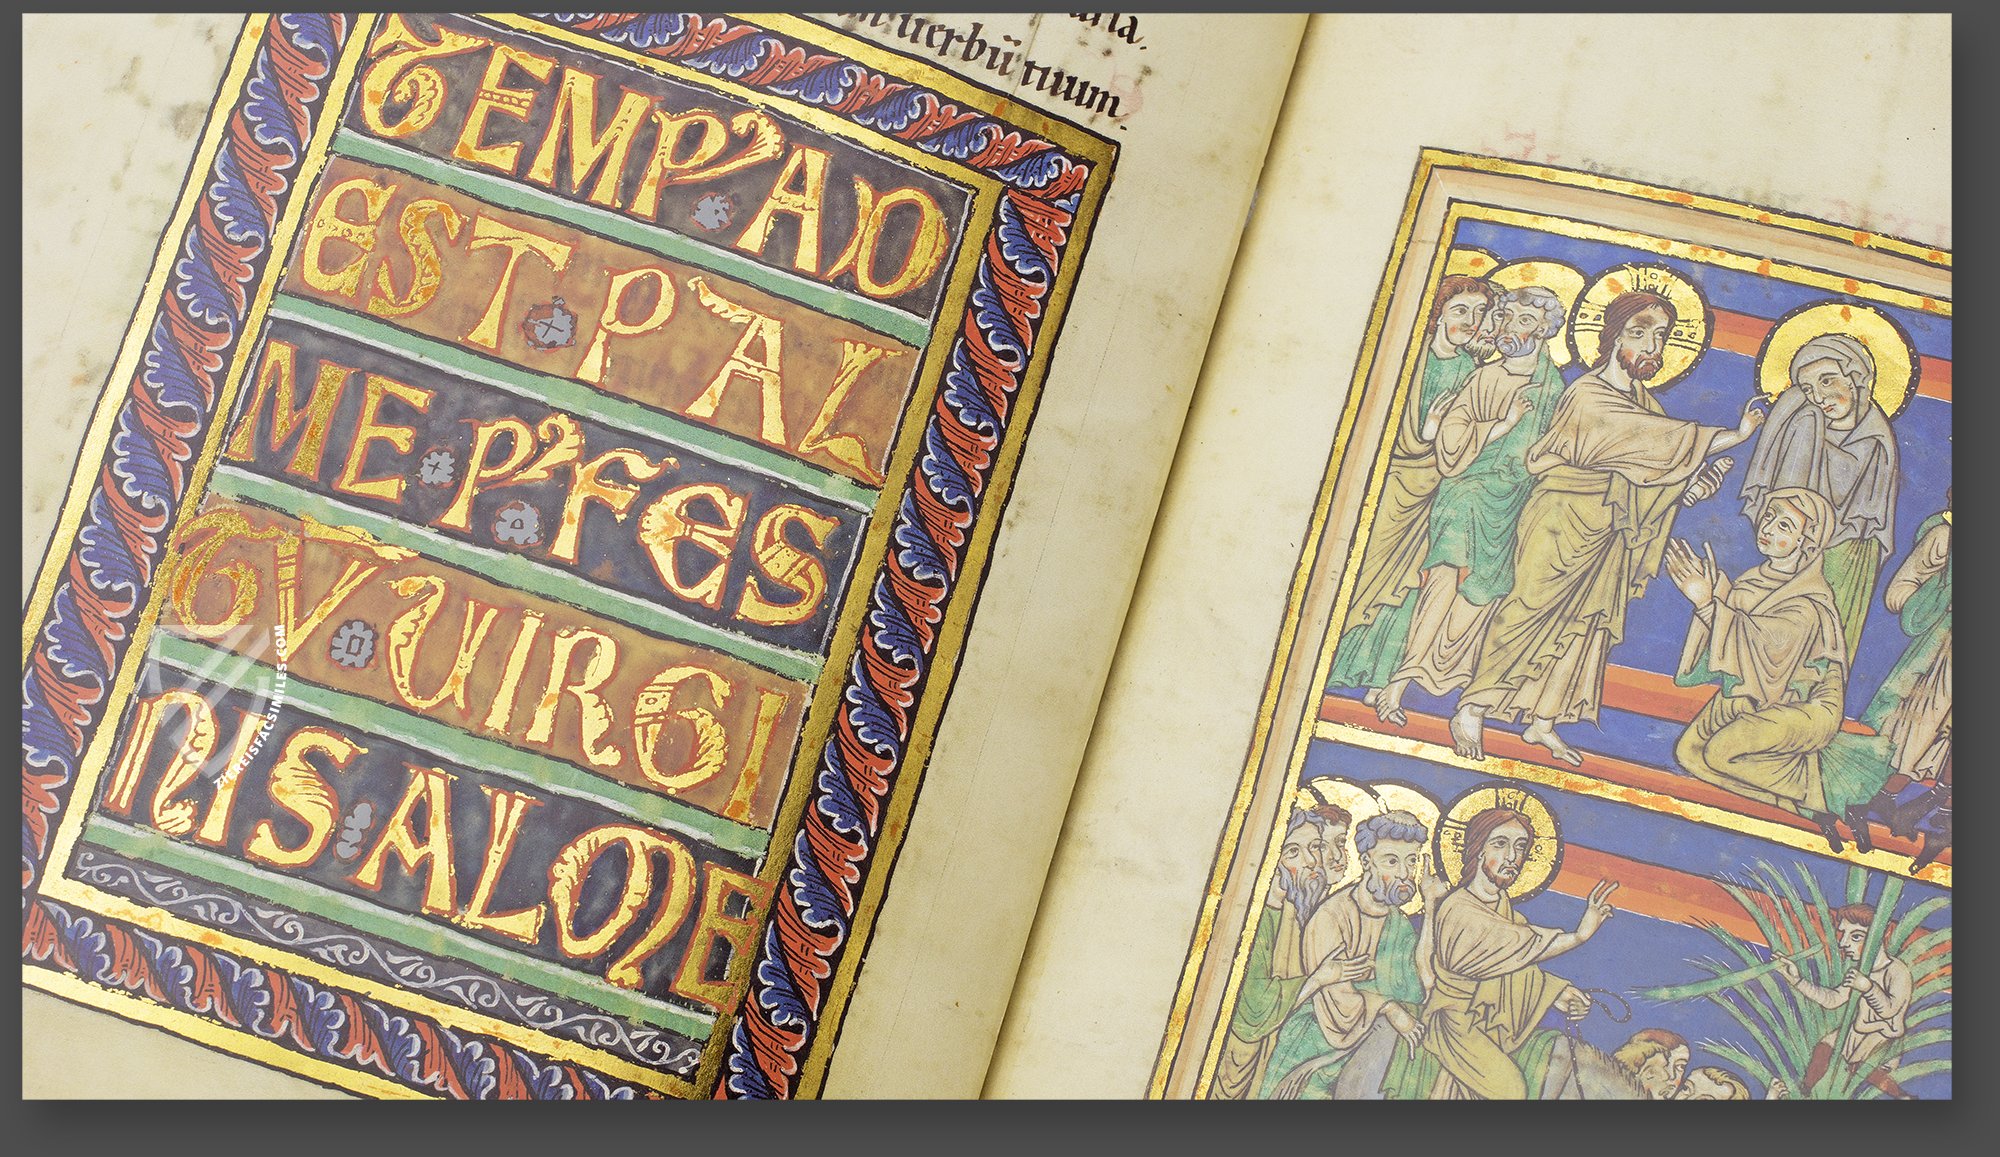 uerbū tuum.
TEMP' AD
EST · PAL
ME · P' FES
TV · UIRGI
NIS · ALME
FACSIMILES.COM